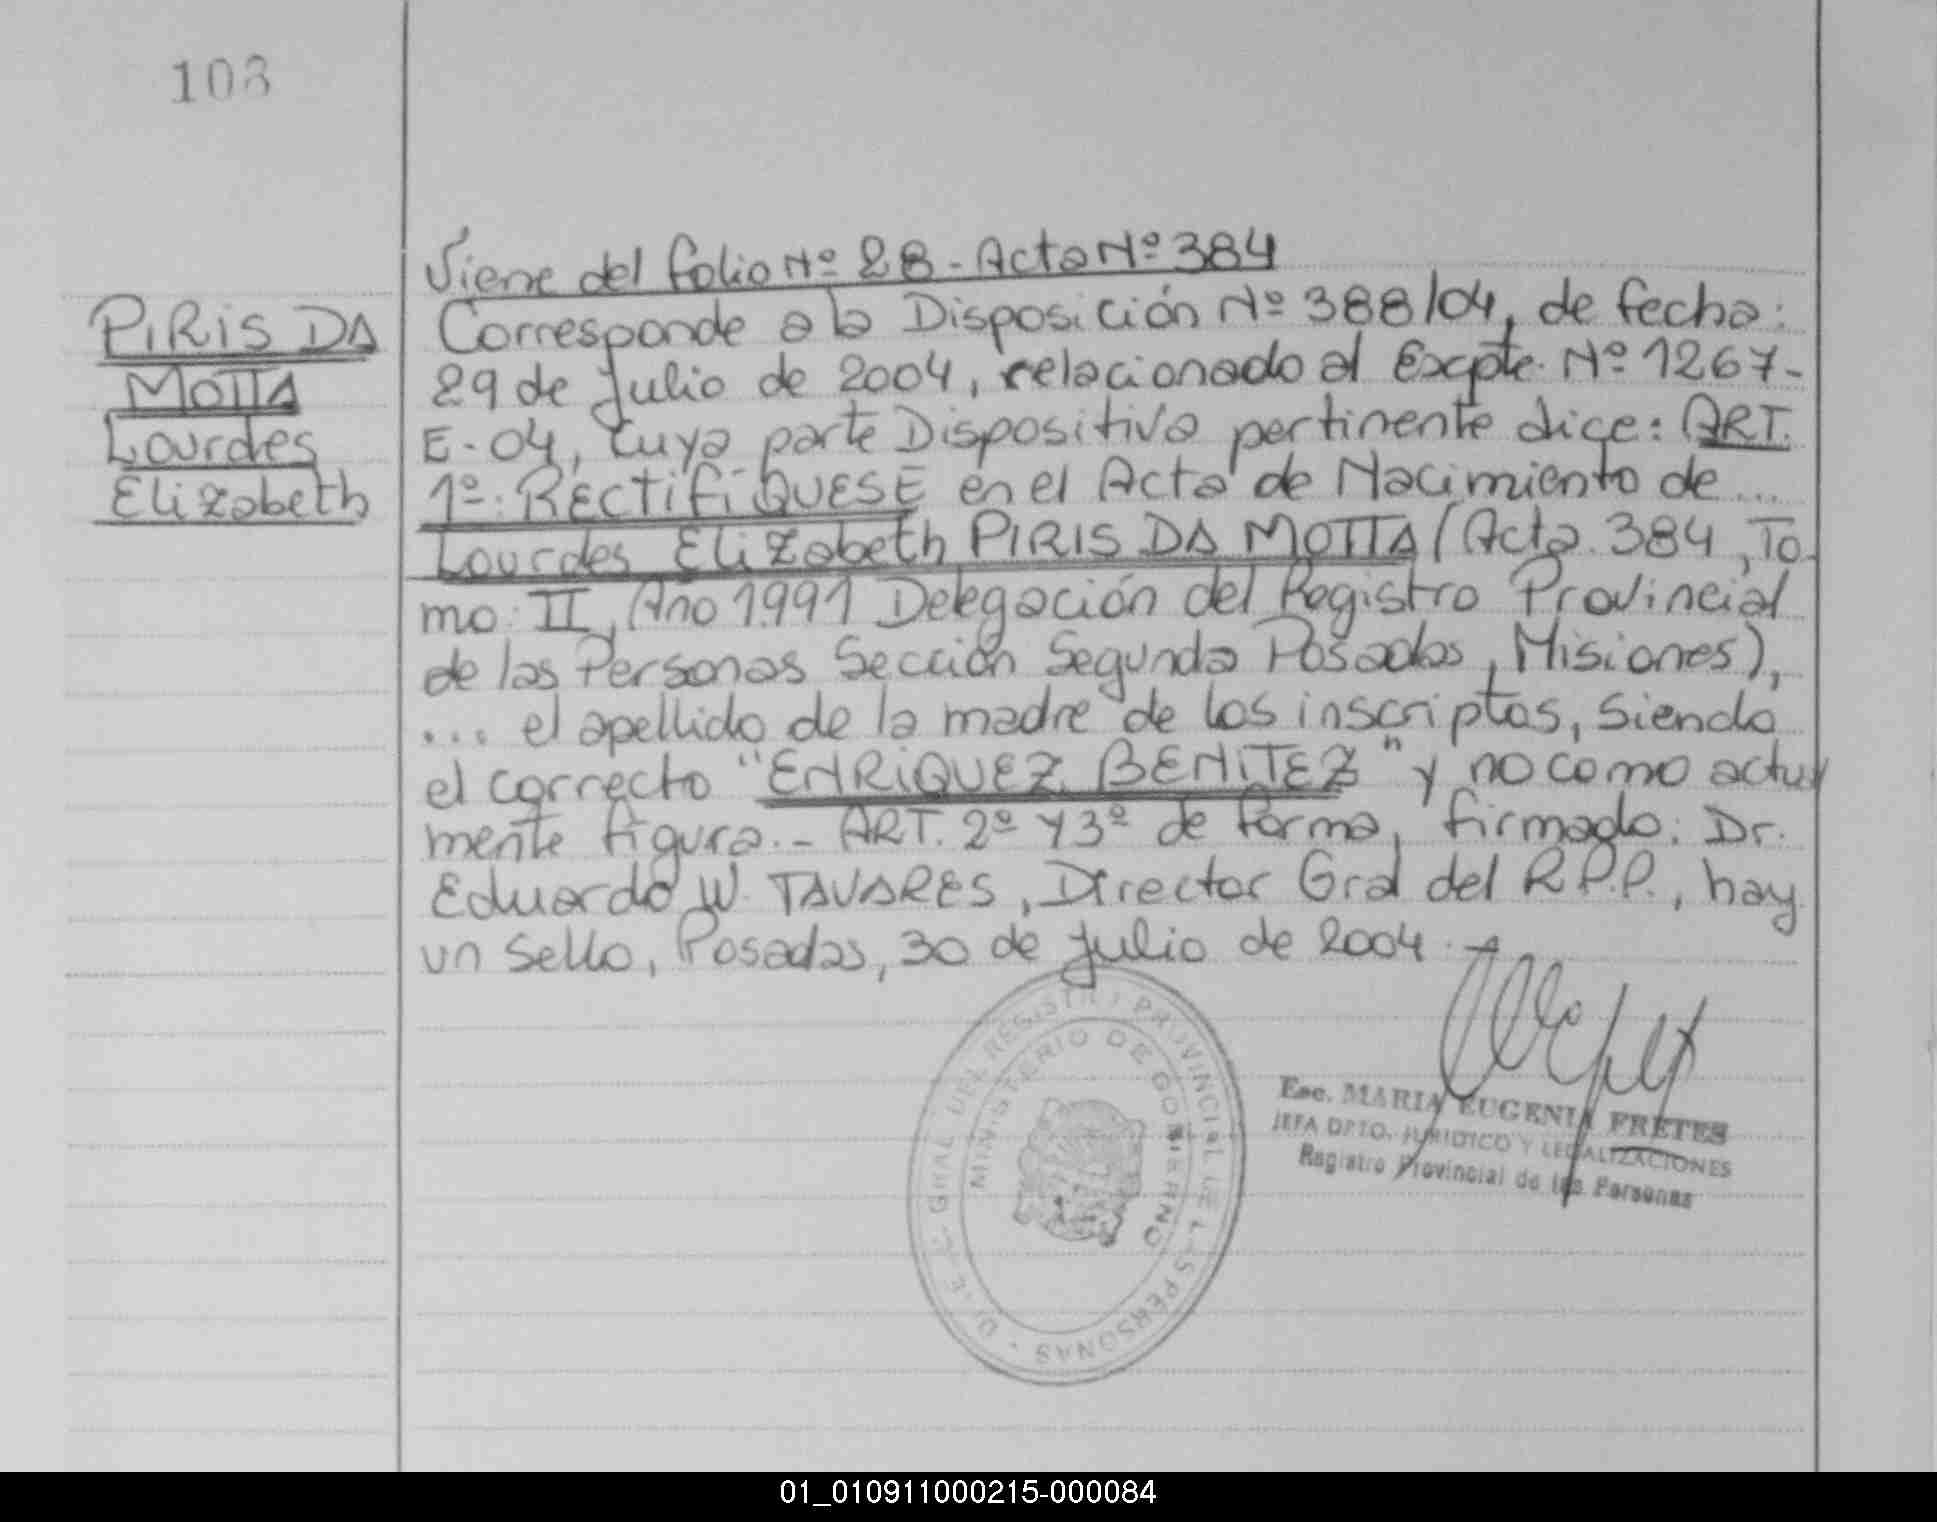 108
PIRIS DA
MOTTA
Lourdes
Elizabeth
Viene del folio Nº 28 - Acta Nº 384
Corresponde a la Disposición Nº 388/04, de fecha:
29 de Julio de 2004, relacionado al Excpte. Nº 1267-
E-04, cuya parte Dispositiva pertinente dice: ART.
1º: RECTIFIQUESE en el Acta de Nacimiento de...
Lourdes Elizabeth PIRIS DA MOTTA (Acta 384, To-
mo: II, Año 1991 Delegación del Registro Provincial
de las Personas Sección Segunda Posadas, Misiones),
... el apellido de la madre de los inscriptos, siendo
el correcto "ENRIQUEZ BENITEZ" y no como actual
mente figura.- ART. 2º y 3º de forma, firmado: Dr.
Eduardo W. TAVARES, Director Gral del R.P.P., hay
un sello, Posadas, 30 de Julio de 2004.-
GRAL DEL REGISTRO PROVINCIAL DE LAS PERSONAS
MINISTERIO DE GOBIERNO
Esc. MARIA EUGENIA FRETES
JEFA DPTO. JURIDICO Y LEGALIZACIONES
Registro Provincial de las Personas
01_010911000215-000084